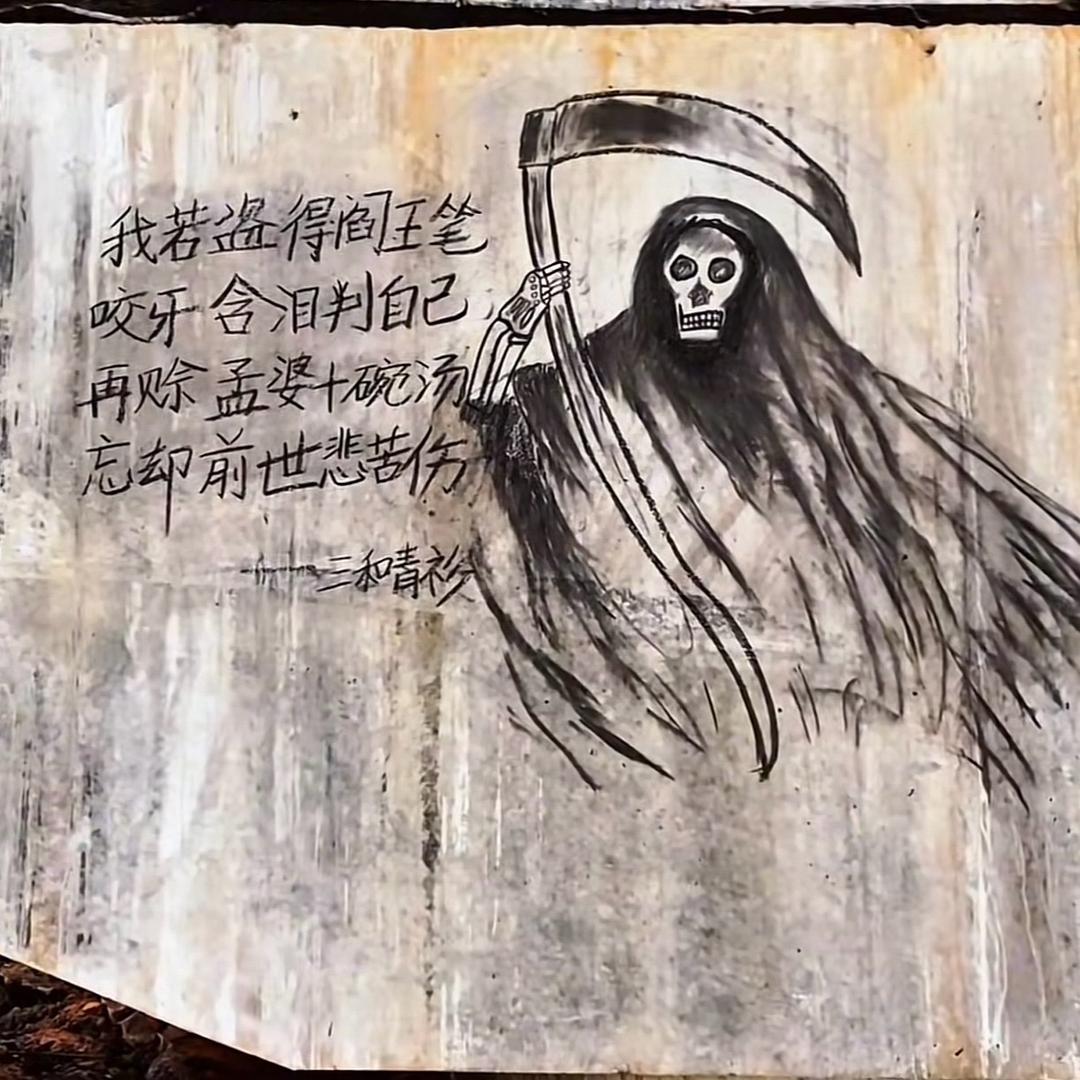 我若盗得阎王笔
咬牙含泪判自己
再赊孟婆十碗汤
忘却前世悲苦伤
——三和青衫